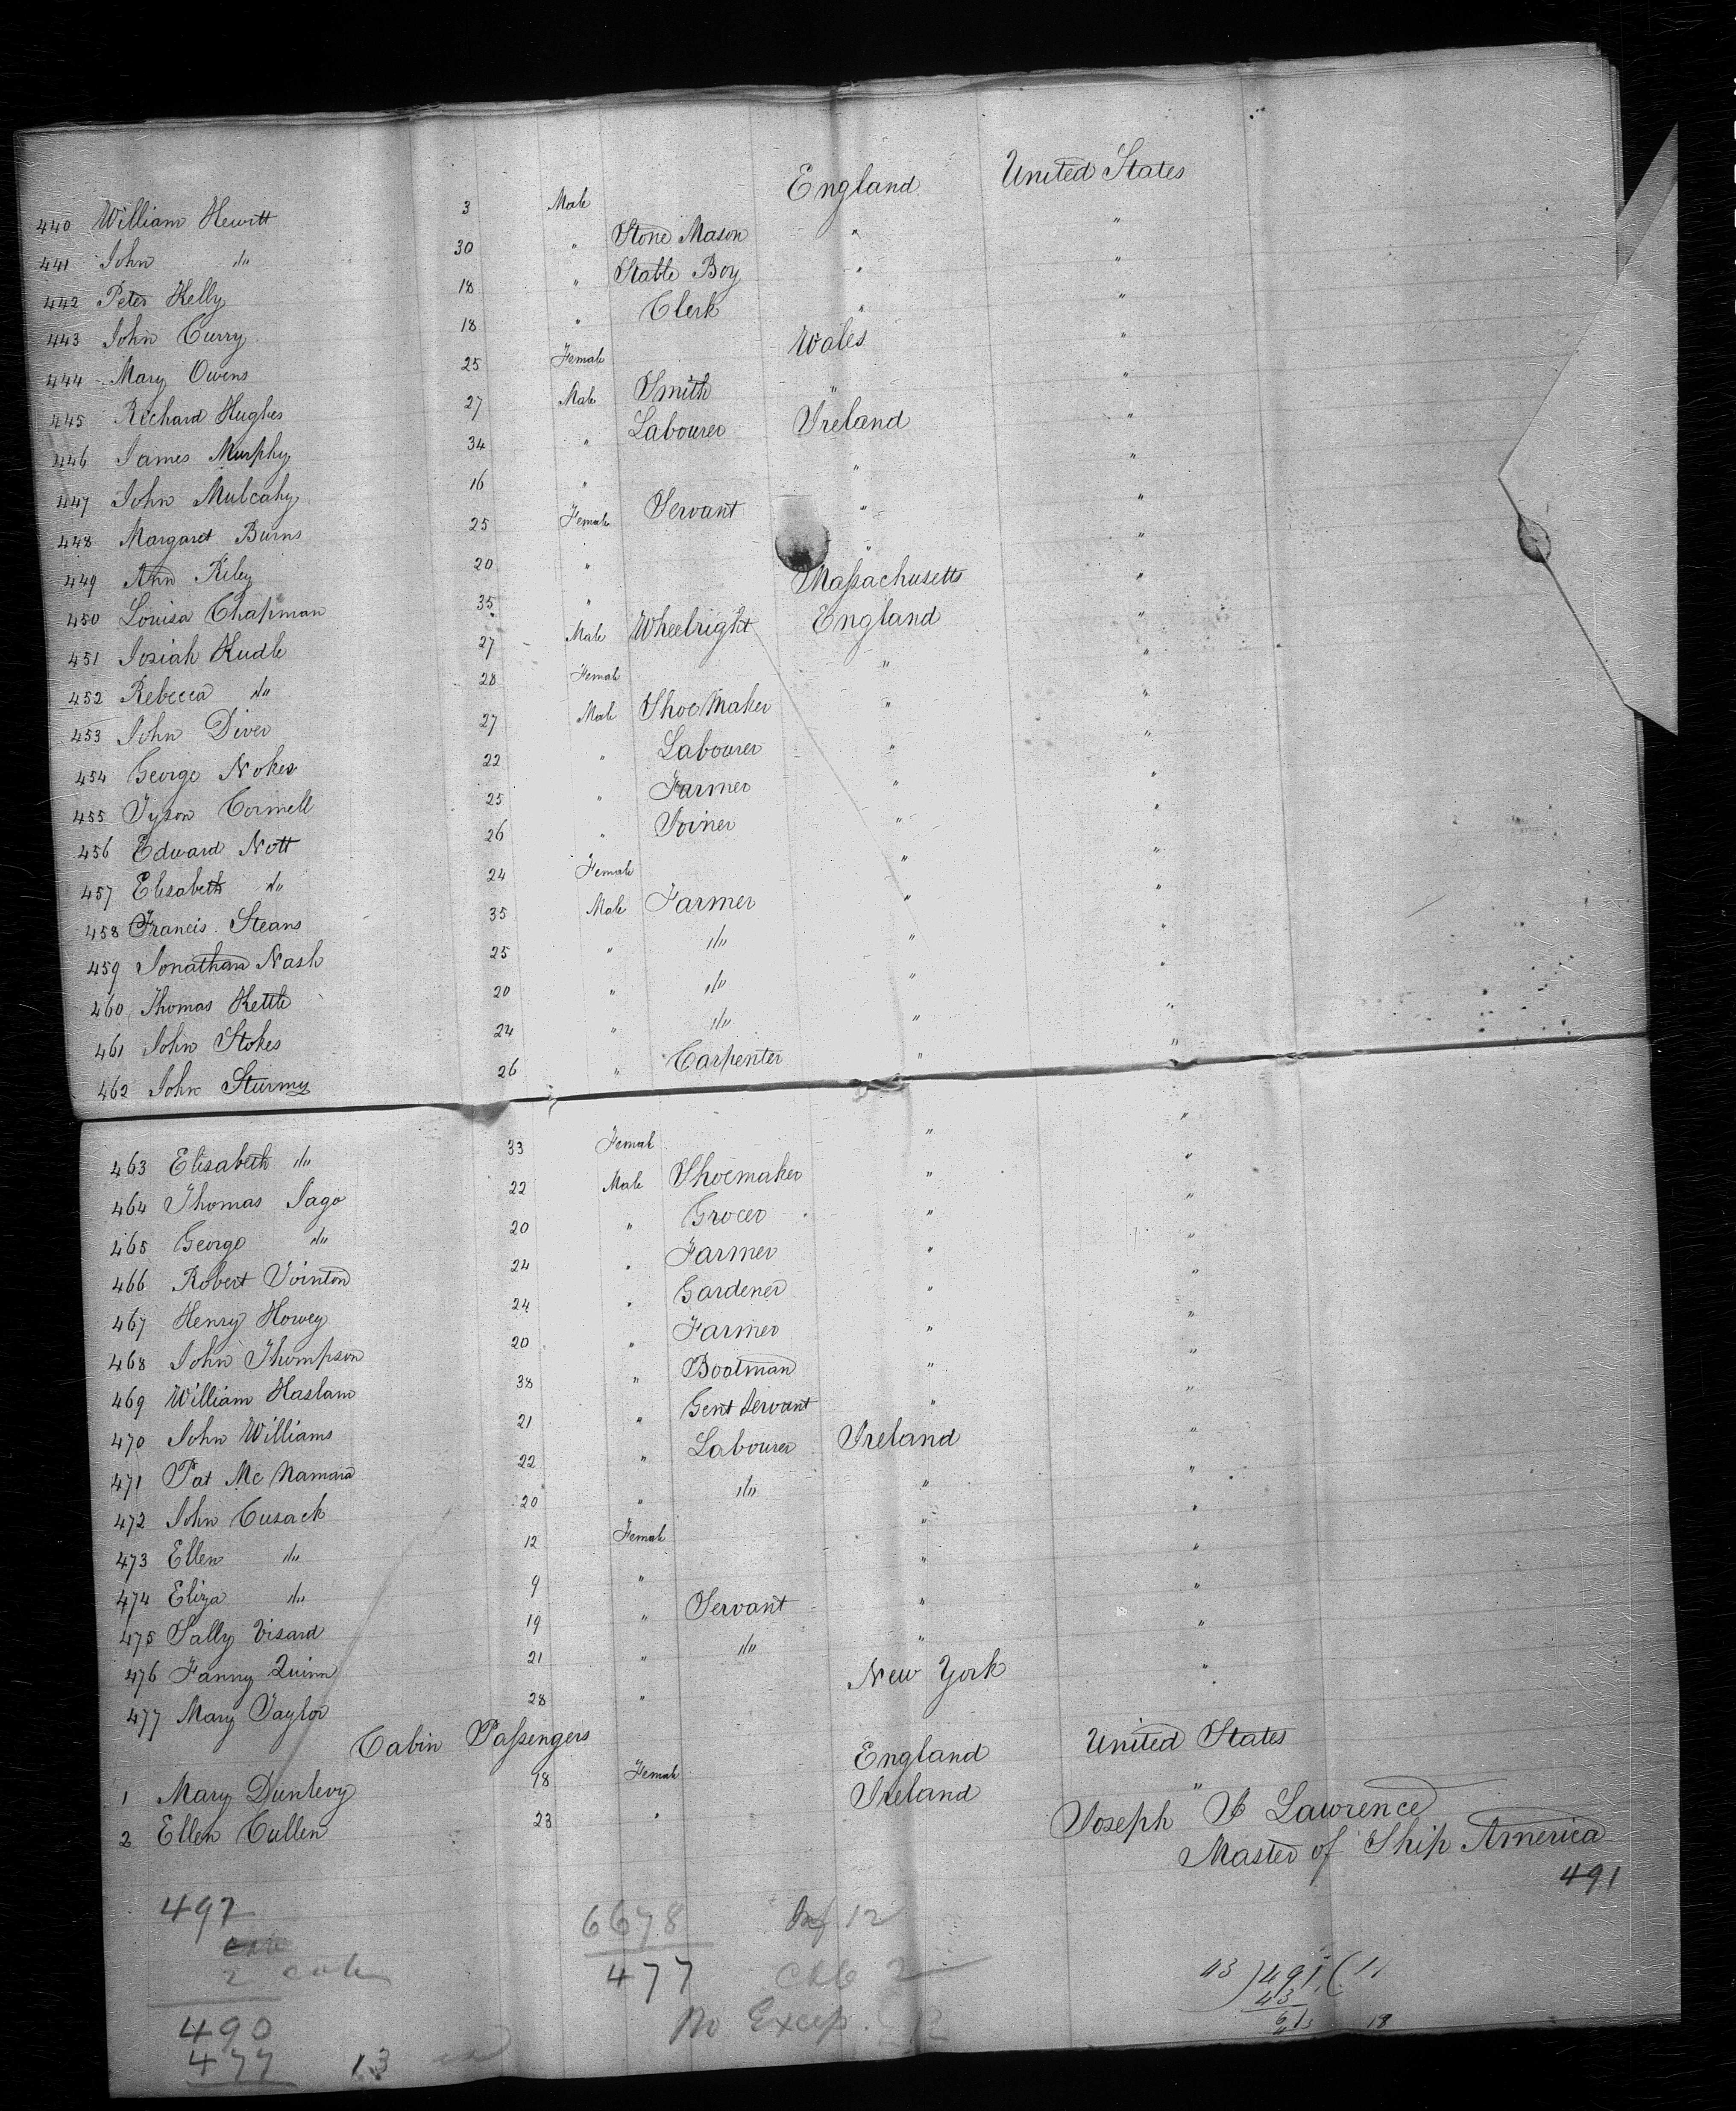 440 William Hewitt 3 Male England United States
441 John do 30 " Stone Mason " "
442 Peter Kelly 18 " Stable Boy " "
443 John Curry 18 " Clerk " "
444 Mary Owens 25 Female Wales "
445 Richard Hughes 27 Male Smith " "
446 James Murphy 34 " Labourer Ireland "
447 John Mulcahy 16 " " "
448 Margaret Burns 25 Female Servant " "
449 Ann Riley 20 " " "
450 Louisa Chapman 35 " Massachusetts "
451 Josiah Kudle 27 Male Wheelright England "
452 Rebecca do 28 Female " "
453 John Diver 27 Male Shoe Maker " "
454 George Nokes 22 " Labourer " "
455 Tyson Cormell 25 " Farmer " "
456 Edward Nott 26 " Joiner " "
457 Elisabeth do 24 Female " "
458 Francis Steans 35 Male Farmer " "
459 Jonathan Nash 25 " do " "
460 Thomas Kettle 20 " do " "
461 John Stokes 24 " do " "
462 John Sturmy 26 " Carpenter " "
463 Elisabeth do 33 Female " "
464 Thomas Jago 22 Male Shoemaker " "
465 George do 20 " Grocer " "
466 Robert Vointon 24 " Farmer " "
467 Henry Howey 24 " Gardener " "
468 John Thompson 20 " Farmer " "
469 William Haslam 38 " Boatman " "
470 John Williams 21 " Gent Servant " "
471 Pat Mc Namara 22 " Labourer Ireland "
472 John Cusack 20 " do " "
473 Ellen do 12 Female " "
474 Eliza do 9 " " "
475 Sally Visard 19 " Servant " "
476 Fanny Quinn 21 " do " "
477 Mary Taylor 28 " New York "
Cabin Passengers
1 Mary Dunlevy 18 Female England United States
2 Ellen Cullen 23 " Ireland "
Joseph Lawrence
Master of Ship America
491
497 6678 Inf 12
2 cab 477 Cab 2
490 No Excep.
477 13
43 ) 491 ( 11
43
61
18